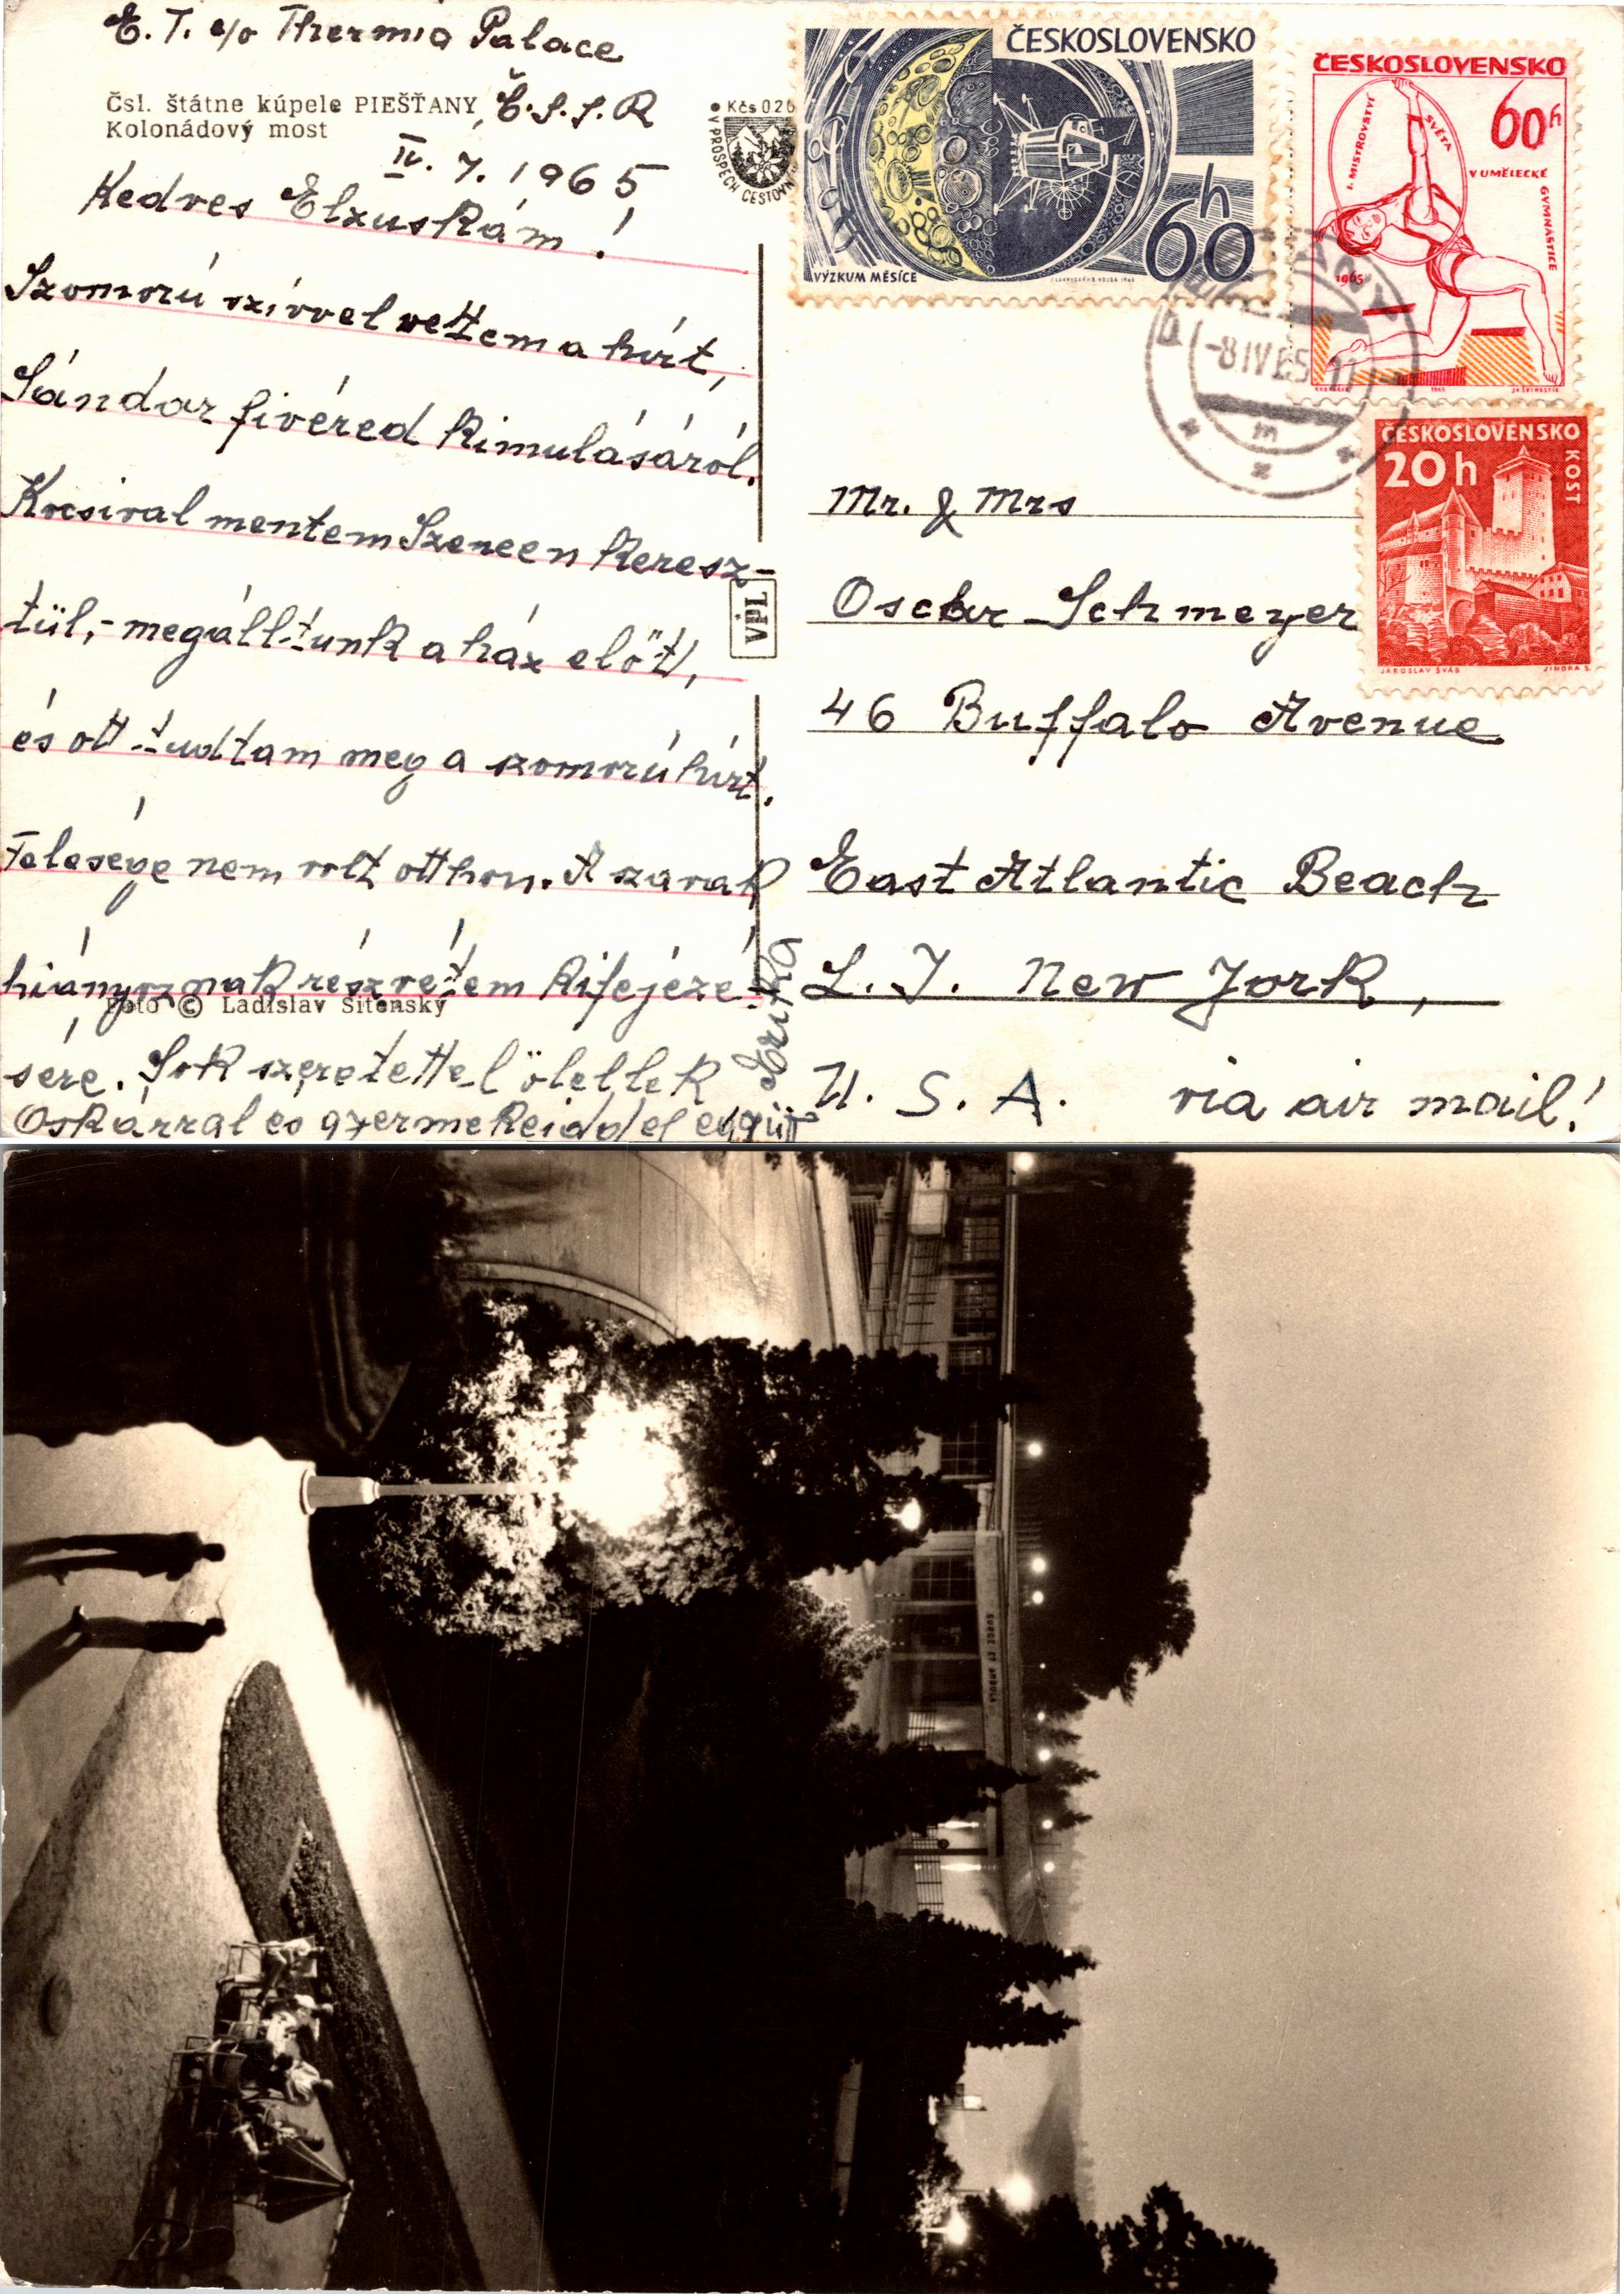 E. T. c/o Thermia Palace
Čsl. štátne kúpele PIEŠŤANY, Č.S.S.R
Kolonádový most
IV. 7. 1965
Kedves Elzuskám!
Szomorú szívvel vettem a hírt,
Sándor fivéred kimulásáról.
Kocsival mentem Szencen keresz-
tül,- megálltunk a ház előtt,
és ott tudtam meg a szomorú hírt.
Felesége nem volt otthon. A szavak
hiányoznak részvétem kifejezé-
Foto © Ladislav Sitenský
sére. Sok szeretettel ölellek
Oskárral es gyermekeiddel együtt
Erika
VPL
Kčs 0,20
V PROSPECH CESTOVN
ČESKOSLOVENSKO
VÝZKUM MĚSÍCE
60h
ČESKOSLOVENSKO
60h
I. MISTROVSTVÍ SVĚTA V UMĚLECKÉ GYMNASTICE
1965
-8 IV 65
ČESKOSLOVENSKO
20h
KOST
JAROSLAV ŠVÁB
JINDRA S.
Mr. & Mrs
Oscar Schmeyer
46 Buffalo Avenue
East Atlantic Beach
L. I. New York,
U. S. A. via air mail!
SURGE ET AMBULA